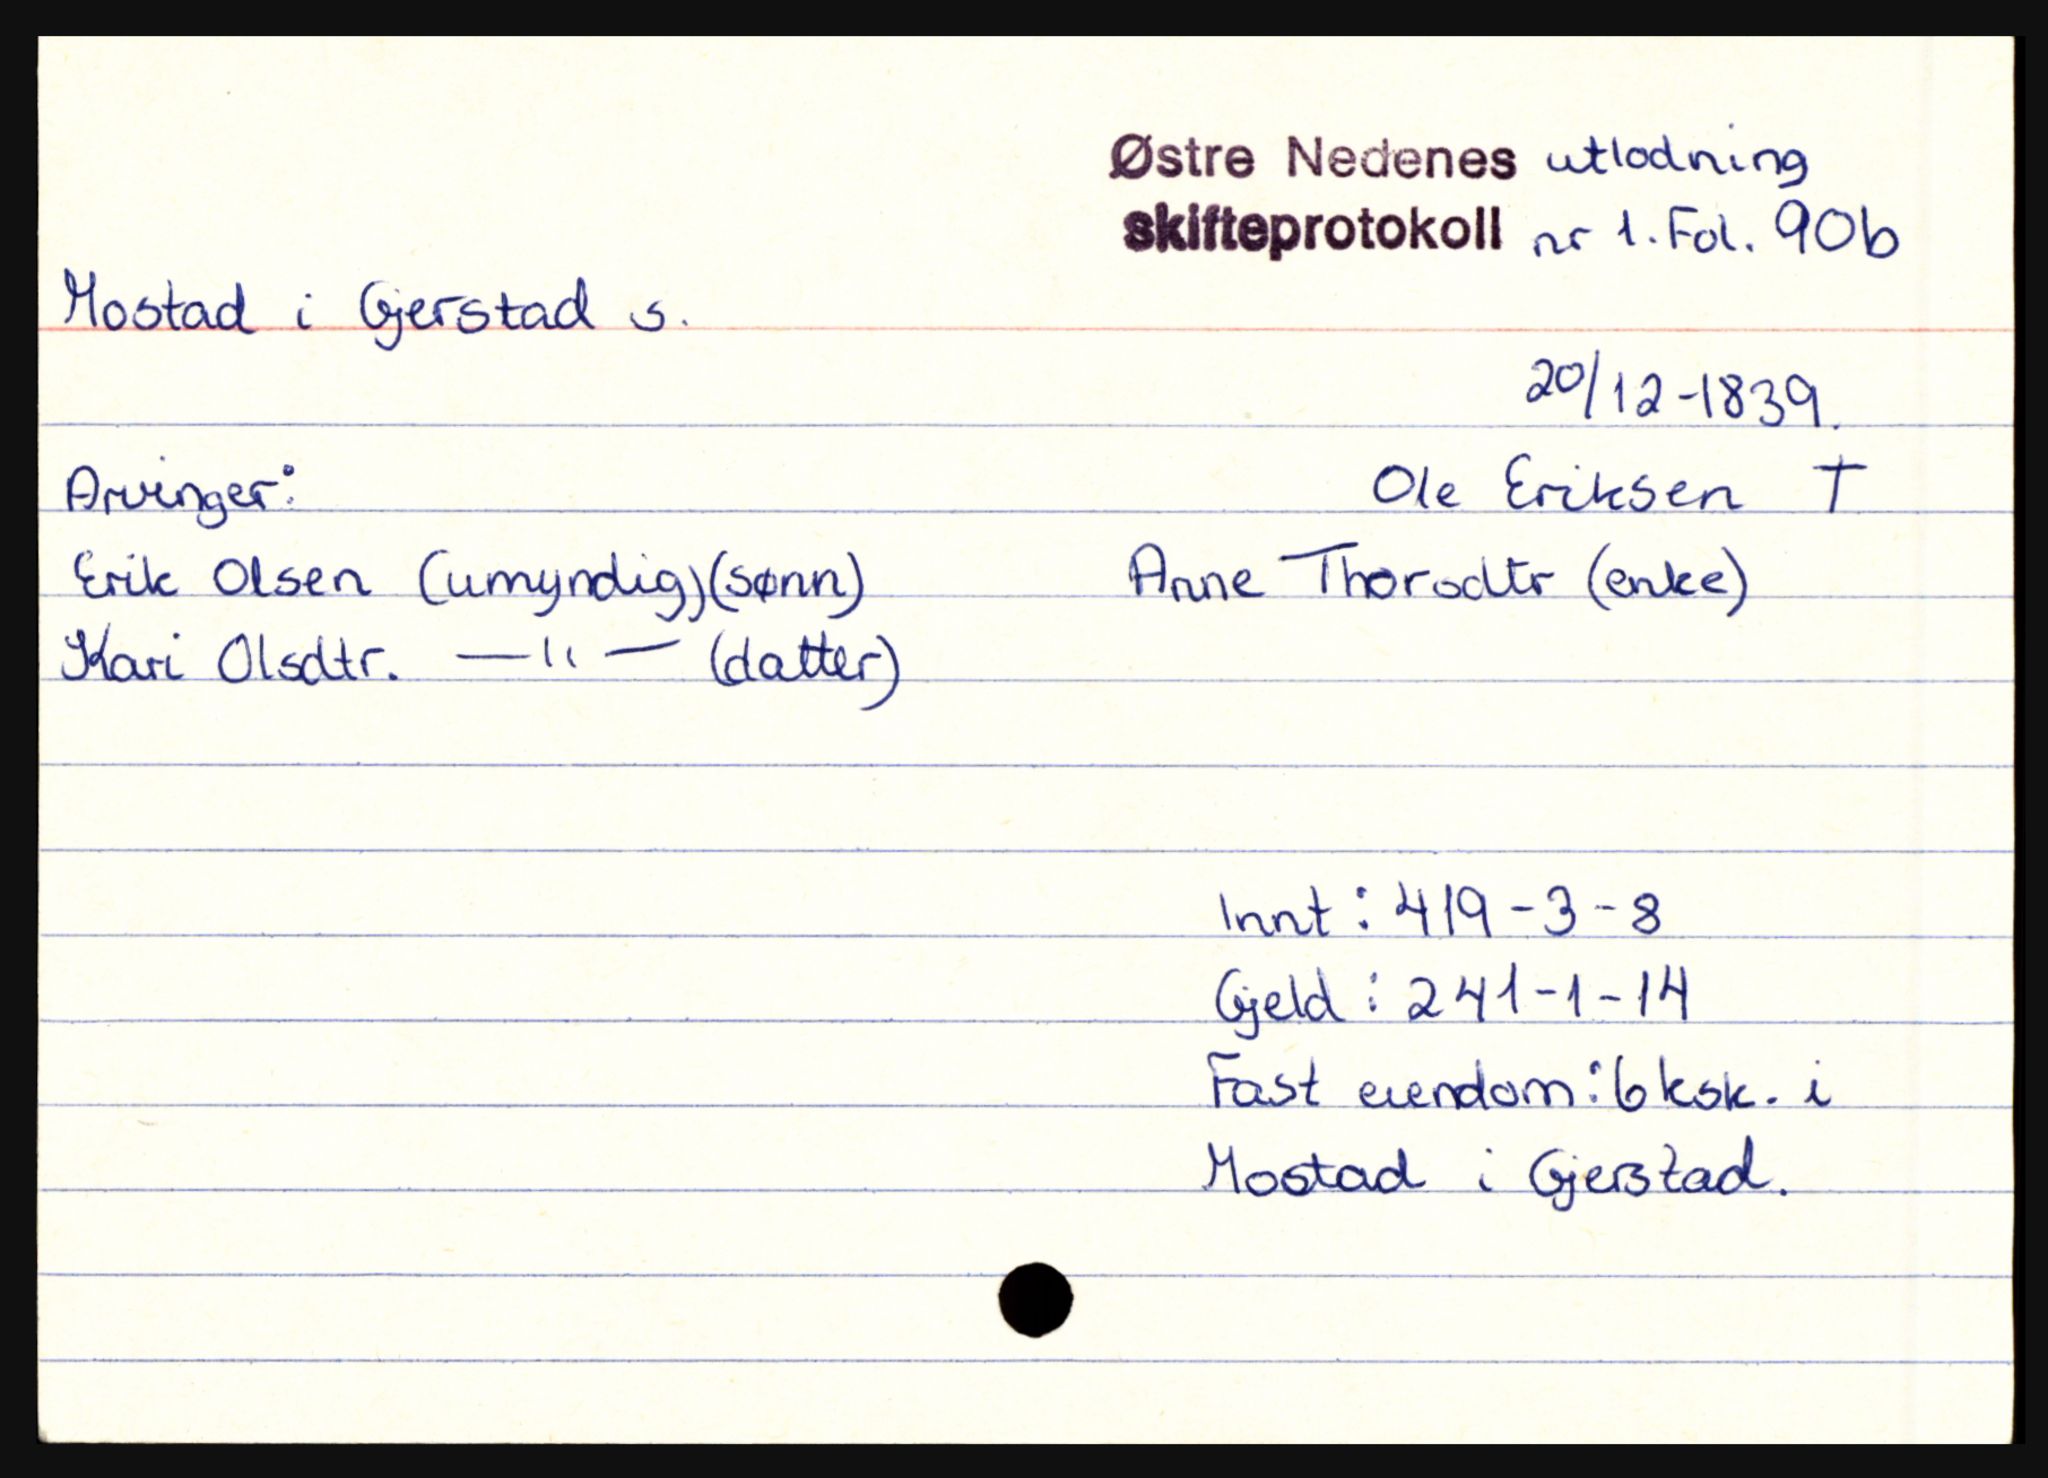 Østre Nedenes utlodning
skifteprotokoll nr 1. Fol. 90b
Mostad i Gjerstad s.
20/12-1839.
Arvinger:
Ole Eriksen †
Erik Olsen (umyndig)(sønn)
Anne Thorsdtr (enke)
Kari Olsdtr. —"— (datter)
Innt: 419-3-8
Gjeld: 241-1-14
Fast eiendom: 6 ksk. i
Mostad i Gjerstad.